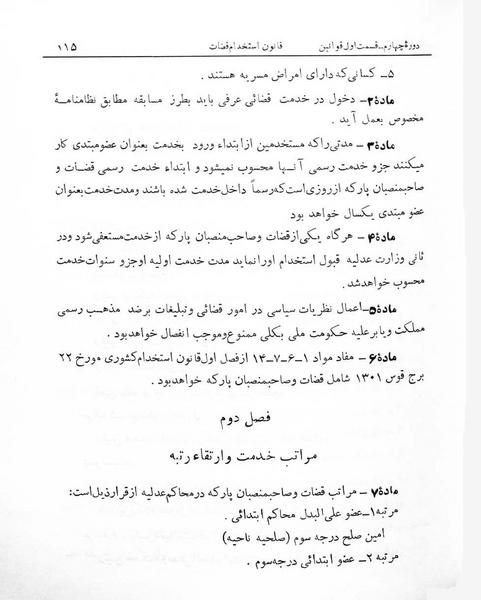 دورهٔ چهارم_ قسمت اول قوانین قانون استخدام قضات ۱۱۵
۵_ کسانی‌که دارای امراض مسریه هستند .
مادهٔ ۲_ دخول در خدمت قضائی عرفی باید بطرز مسابقه مطابق نظامنامهٔ
مخصوص بعمل آید .
مادهٔ ۳_ مدتی را که مستخدمین از ابتداء ورود بخدمت بعنوان عضو مبتدی کار
میکنند جزو خدمت رسمی آنها محسوب نمیشود و ابتداء خدمت رسمی قضات و
صاحبمنصبان پارکه از روزی است که رسماً داخل خدمت شده باشند و مدت خدمت بعنوان
عضو مبتدی یکسال خواهد بود
مادهٔ ۴_ هر گاه یکی از قضات و صاحب‌منصبان پارکه از خدمت مستعفی شود و در
ثانی وزارت عدلیه قبول استخدام او را نماید مدت خدمت اولیه او جزو سنوات خدمت
محسوب خواهد شد.
مادهٔ ۵_ اعمال نظریات سیاسی در امور قضائی و تبلیغات بر ضد مذهب رسمی
مملکت و یا بر علیه حکومت ملی بکلی ممنوع و موجب انفصال خواهد بود .
مادهٔ ۶_ مفاد مواد ۱_۶_۷_۱۴ از فصل اول قانون استخدام کشوری مورخ ۲۲
برج قوس ۱۳۰۱ شامل قضات و صاحبمنصبان پارکه خواهد بود .
فصل دوم
مراتب خدمت و ارتقاء رتبه
مادهٔ ۷_ مراتب قضات و صاحبمنصبان پارکه در محاکم عدلیه از قرار ذیل است:
مرتبه ۱_ عضو علی‌البدل محاکم ابتدائی .
امین صلح درجه سوم (صلحیه ناحیه)
مرتبه ۲_ عضو ابتدائی درجه سوم .